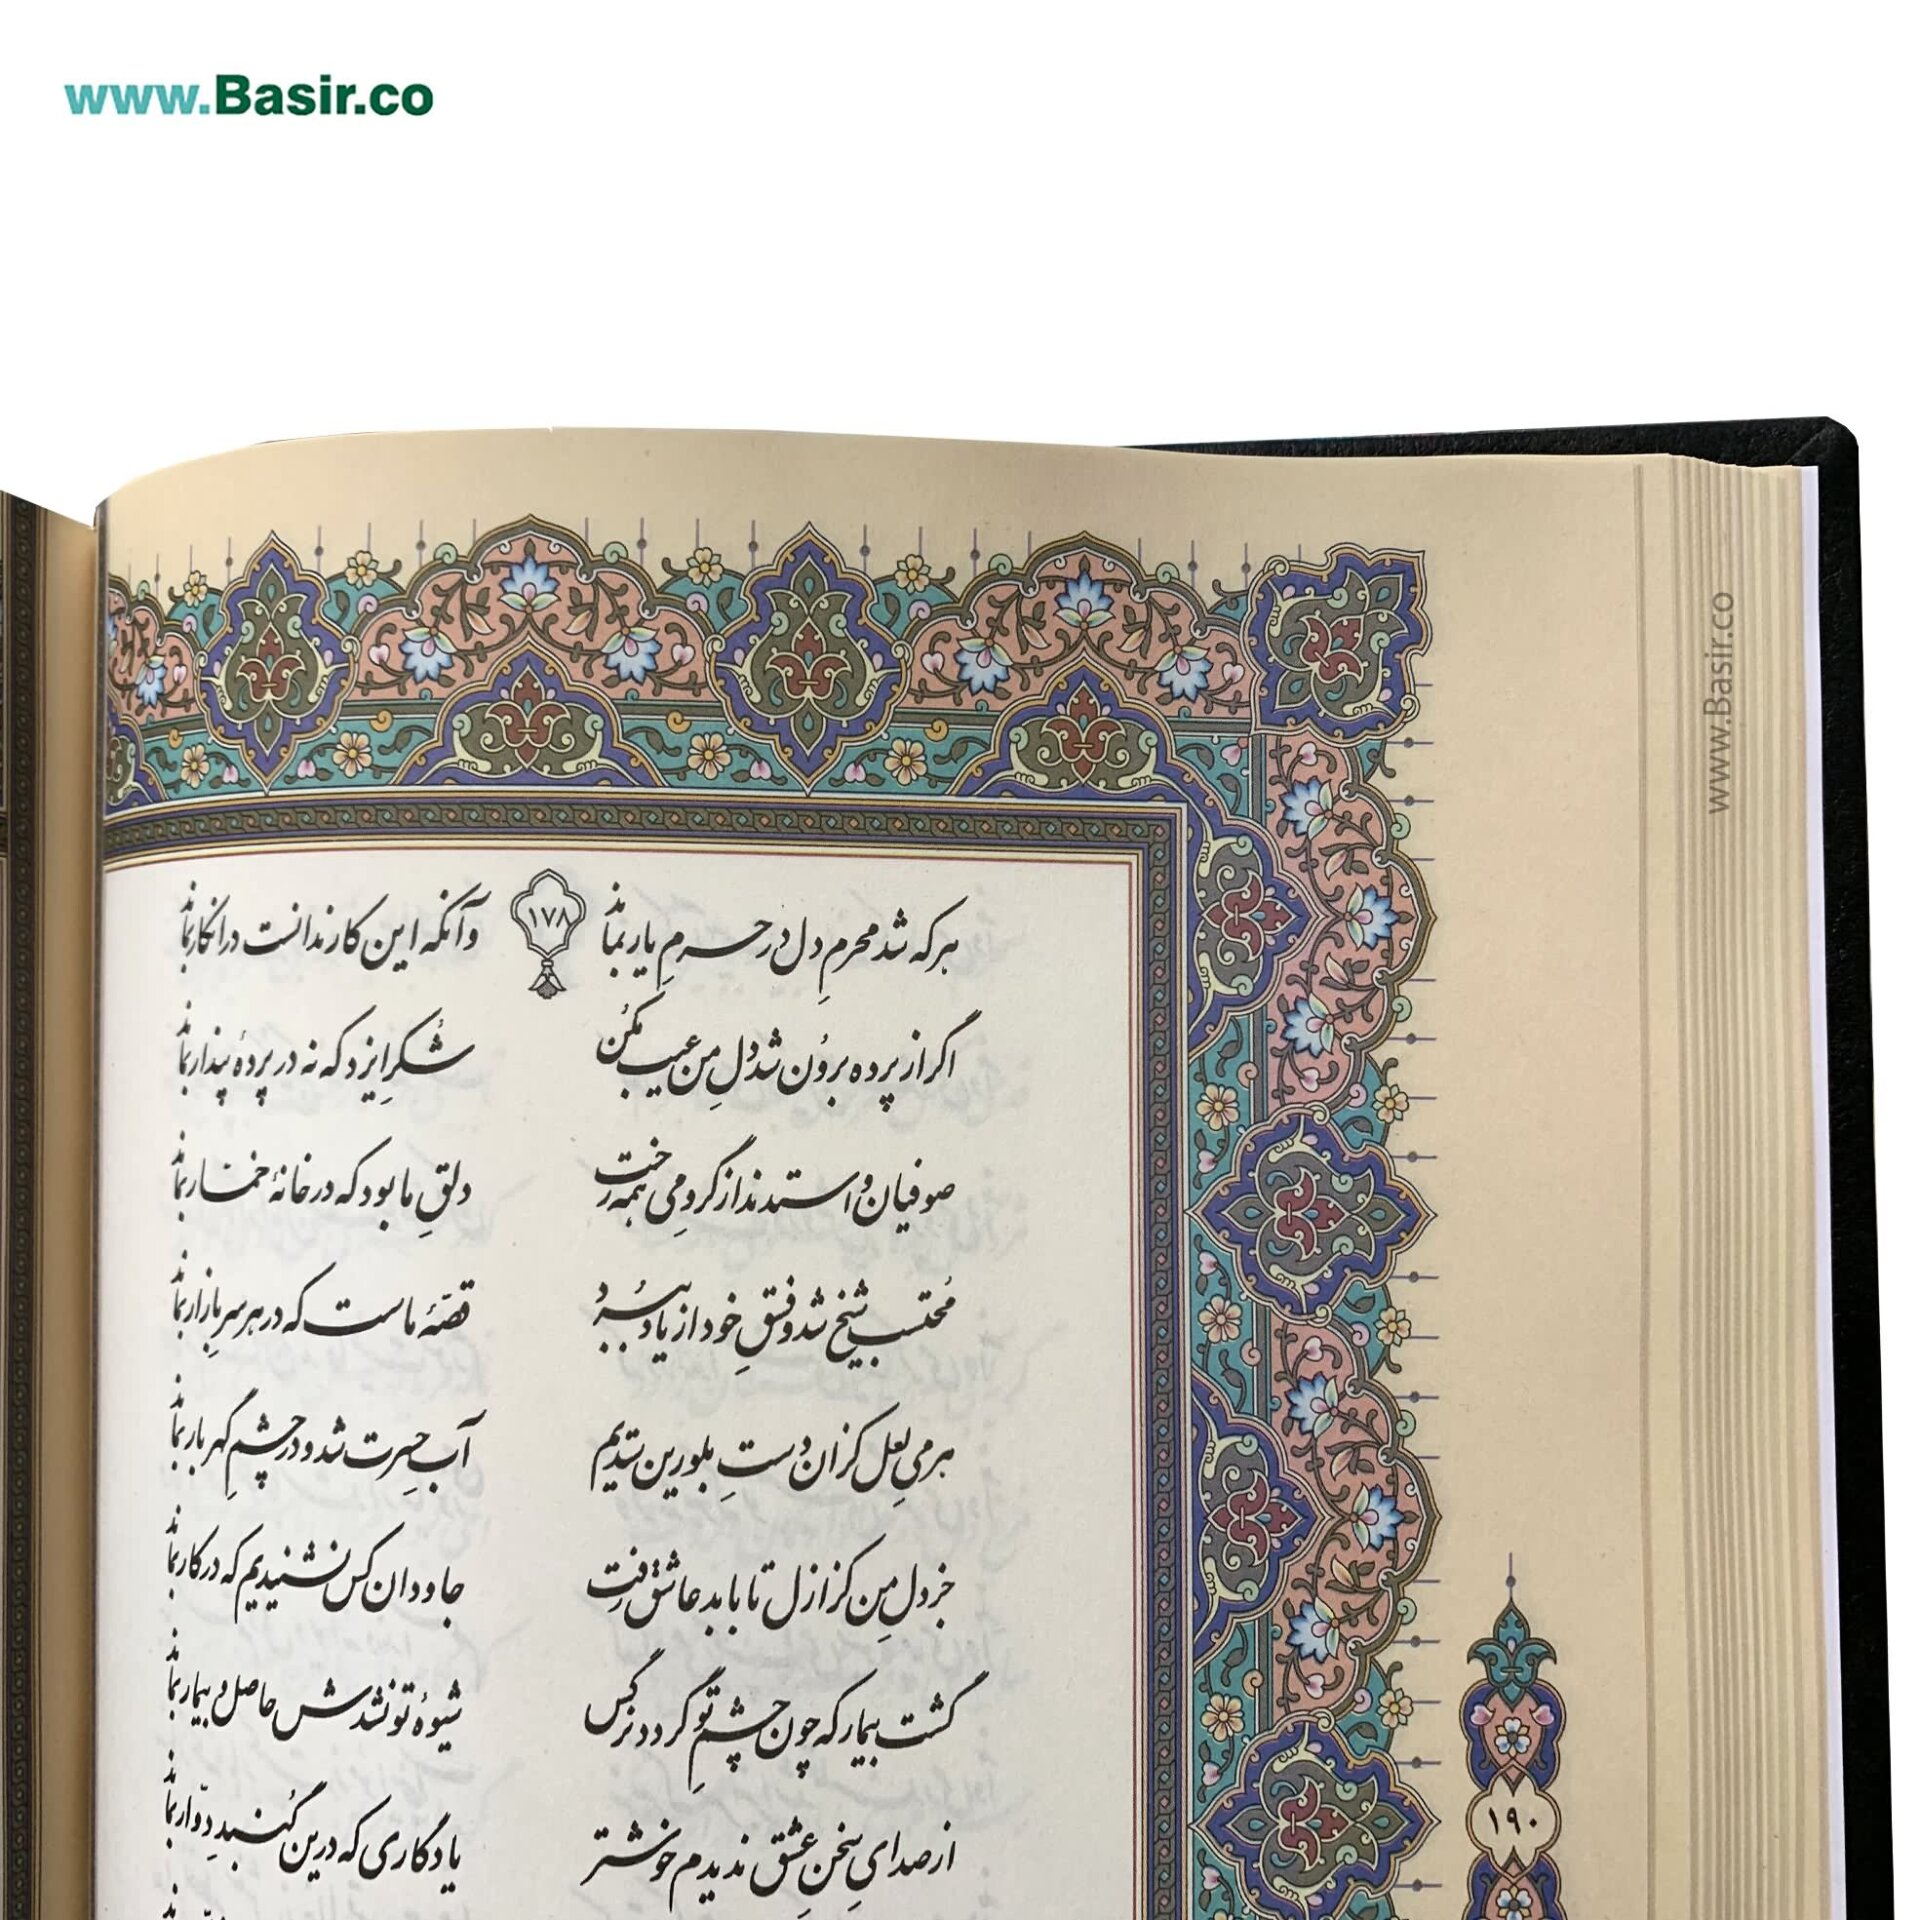 www.Basir.co
www.Basir.co
۱۷۸
هر که شد محرمِ دل در حرمِ یار بماند
وآنکه این کار ندانست در انکار بماند
اگر از پرده برون شد دلِ من عیب مکن
شکرِ ایزد که نه در پردهٔ پندار بماند
صوفیان واستدند از گروِ می همه رخت
دلقِ ما بود که در خانهٔ خمّار بماند
محتسب شیخ شد و فسقِ خود از یاد ببرد
قصّهٔ ماست که در هر سرِ بازار بماند
هر میِ لعل کزان دستِ بلورین ستدیم
آبِ حسرت شد و در چشمِ گهربار بماند
جز دلِ من کز ازل تا بابد عاشق رفت
جاودان کس نشنیدیم که در کار بماند
گشت بیمار که چون چشمِ تو گردد نرگس
شیوهٔ تو نشدش حاصل و بیمار بماند
از صدای سخنِ عشق ندیدم خوشتر
یادگاری که درین گنبدِ دوّار بماند
۱۹۰